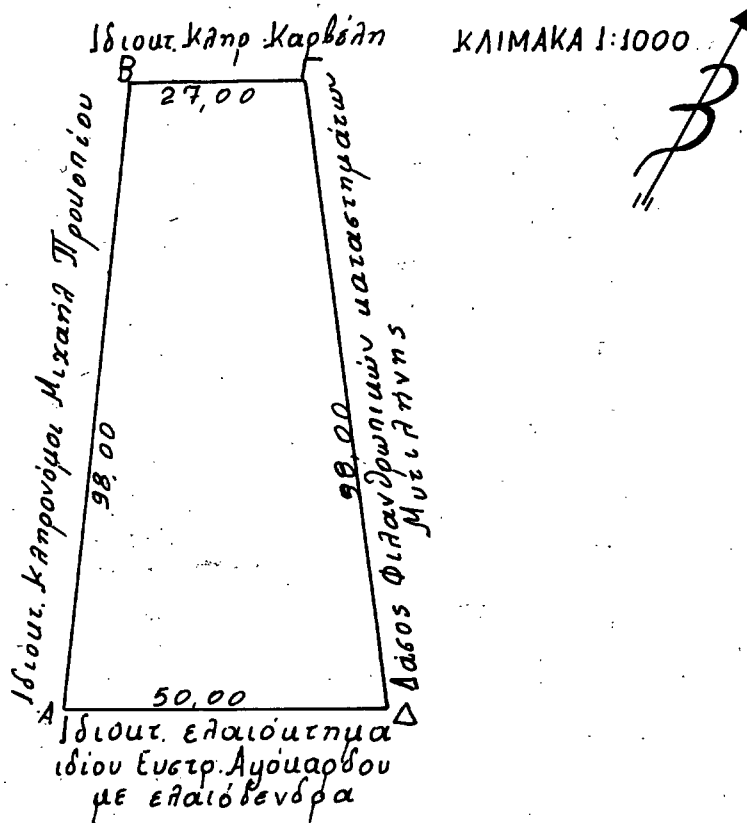 Ιδιοκτ. Κληρ. Καρβέλη
ΚΛΙΜΑΚΑ 1:1000
Β
Β
Γ
27,00
Ιδιοκτ. Κληρονόμοι Μιχαήλ Προκοπίου
98,00
98,00
Δάσος Φιλανθρωπικών καταστημάτων
Μυτιλήνης
Α
50,00
Δ
Ιδιοκτ. ελαιόκτημα
ιδίου Ευστρ.
με ελαιόδενδρα